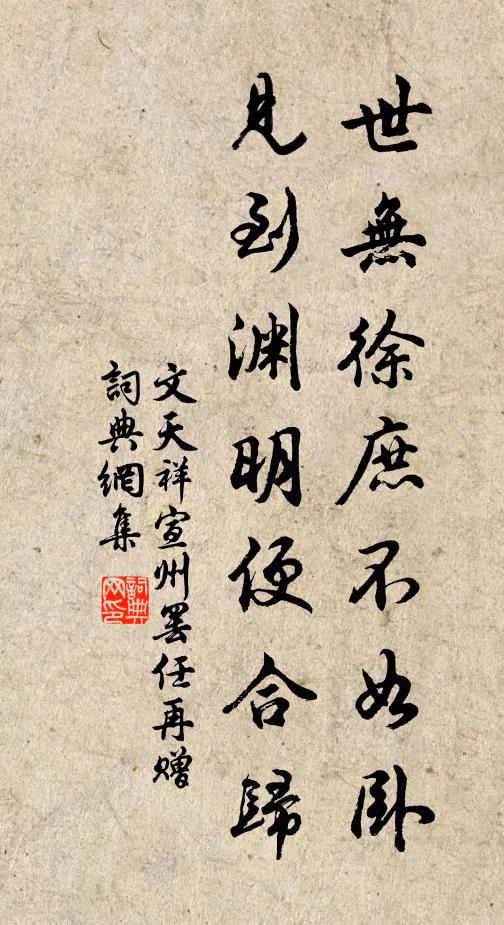 世無徐庶不如臥
見到渊明便合歸
文天祥宣州罢任再赠
詞典網集
詞典網印